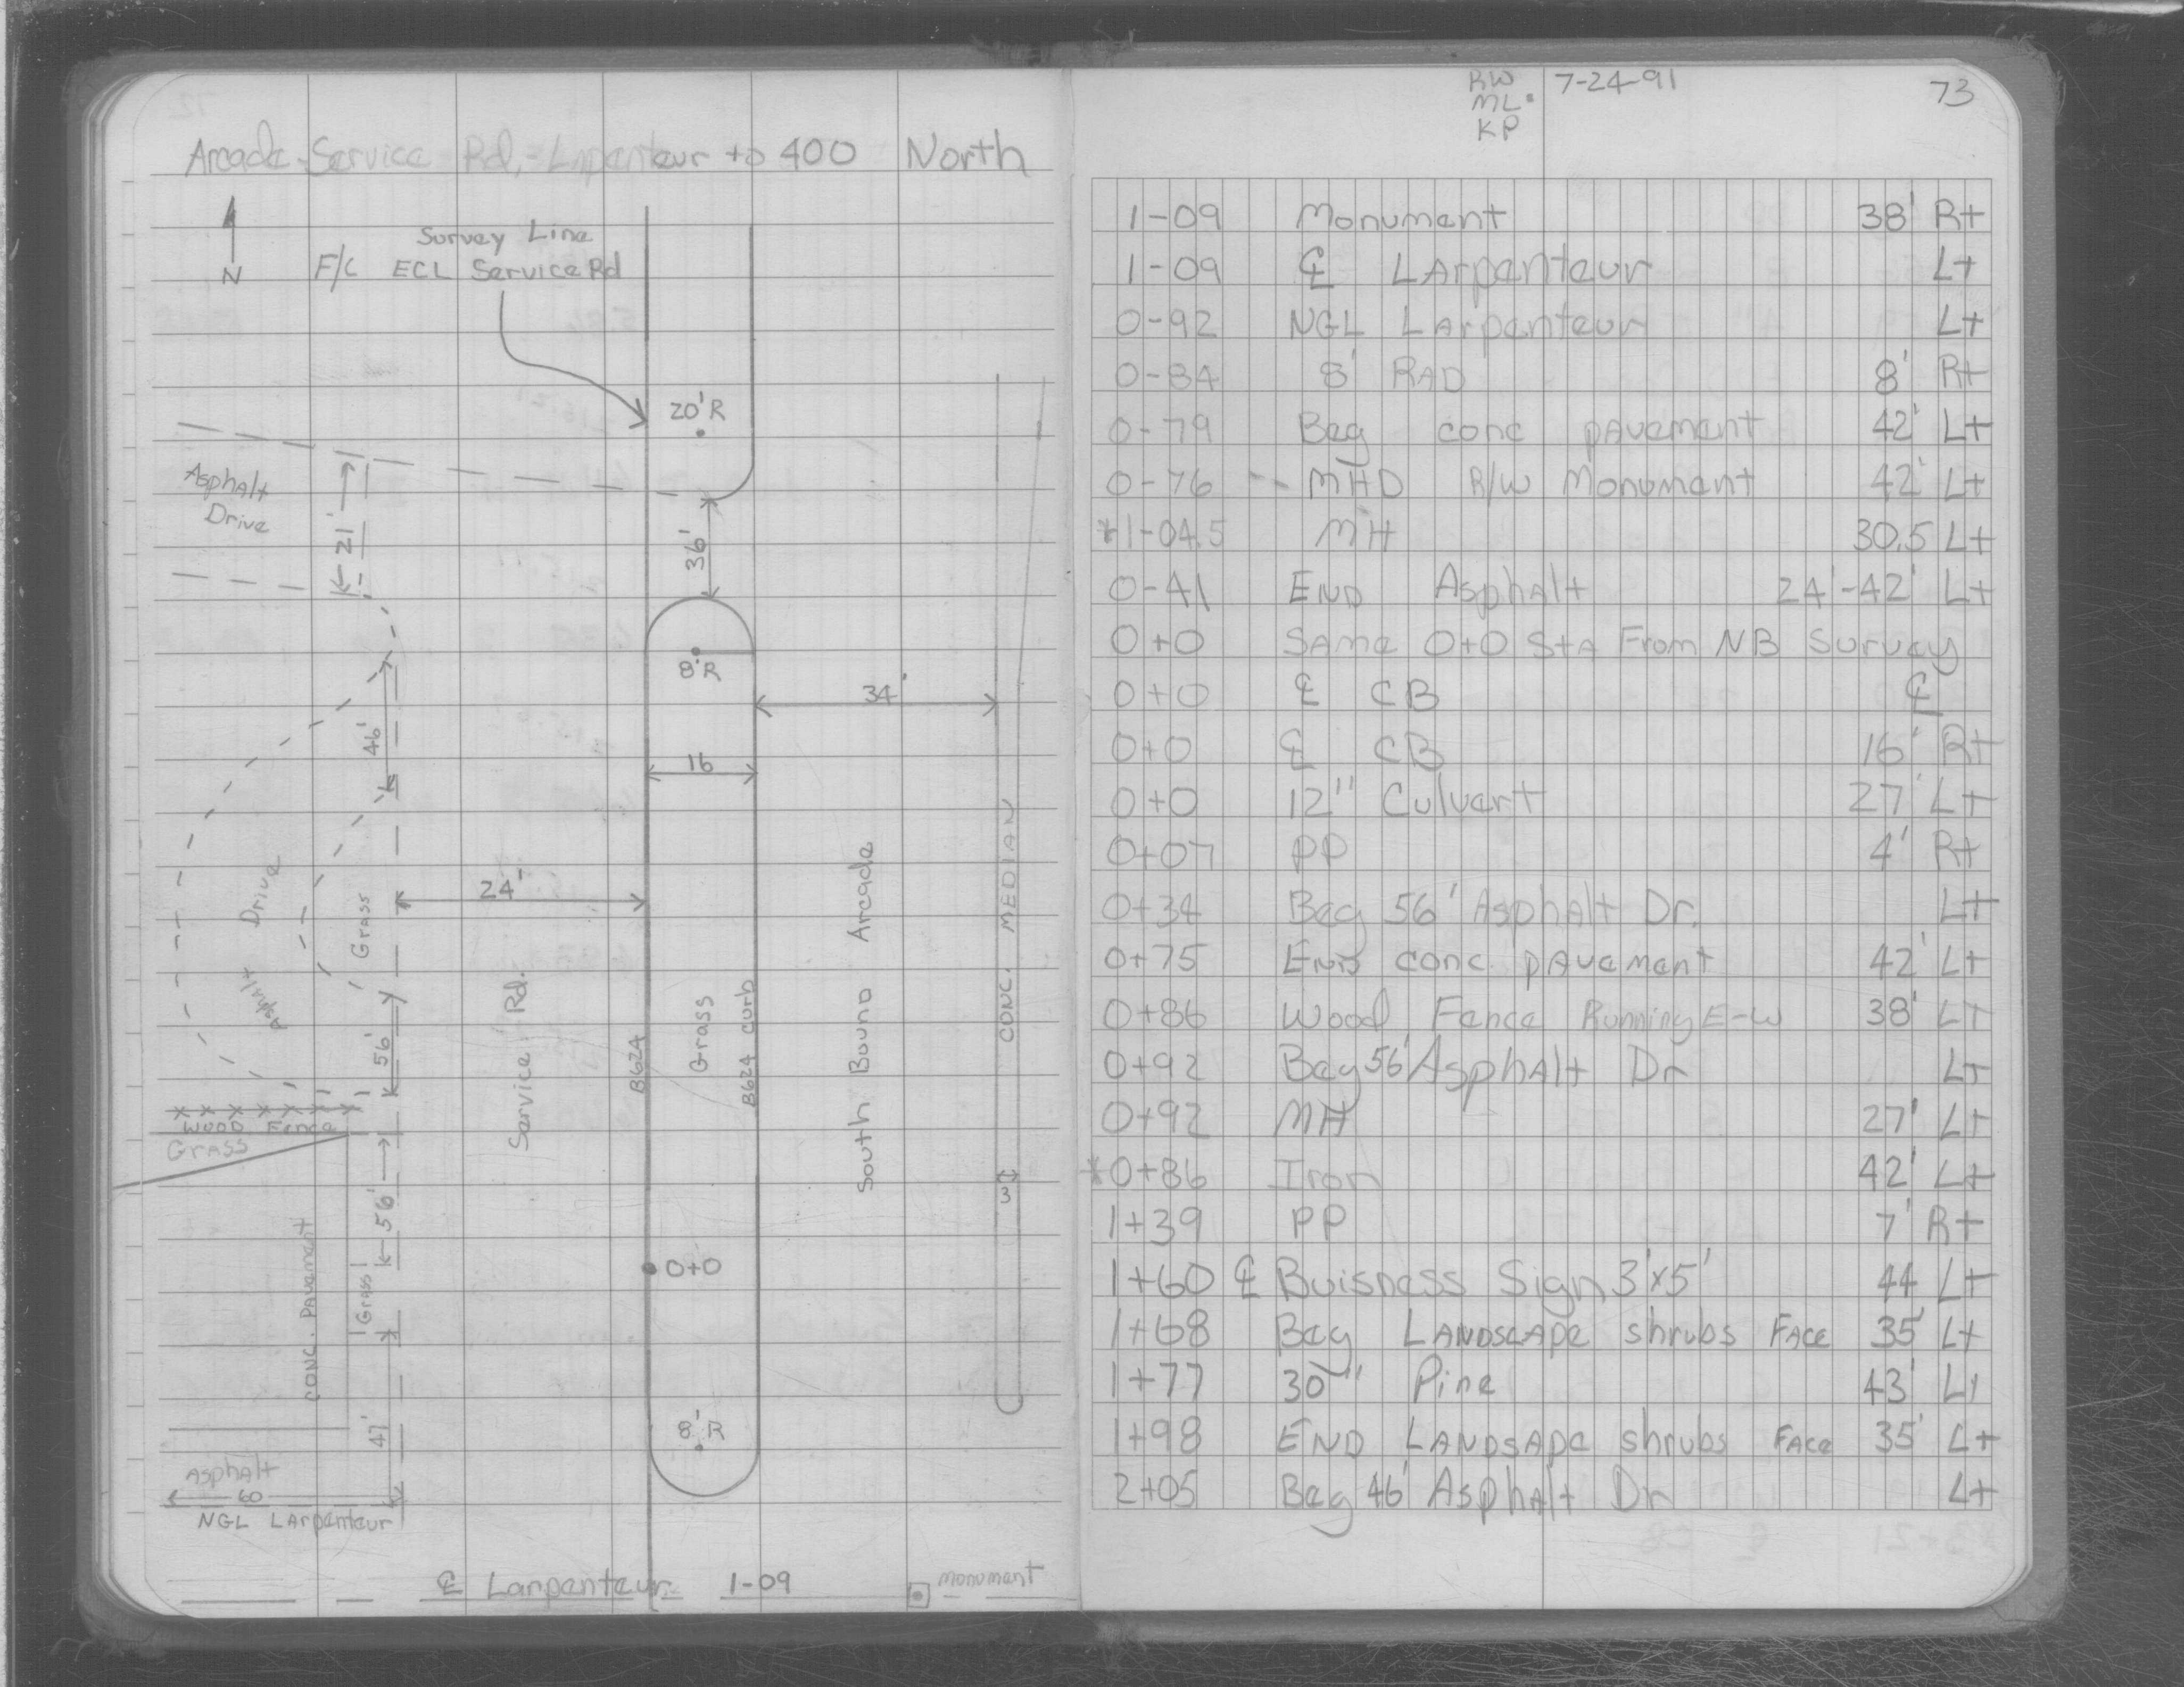 Arcade Service Rd, - Lnpenteur to 400 North
N
Survey Line
F/C ECL Service Rd
20' R
Asphalt
Drive
21'
36'
8' R
34'
46'
16
24'
Drive
Asphalt
Grass
56'
Service Rd.
B624
Grass
B624 curb
South Bound Arcade
CONC. MEDIAN
WOOD Fence
GRASS
56'
3
CONC. Pavement
Grass
0+0
41'
8' R
Asphalt
60
NGL LArpenteur
℄ Larpenteur 1-09 monument
RW 7-24-91 73
ML
KP
1-09 Monument 38' Rt
1-09 ℄ LArpenteur Lt
0-92 NGL LArpenteur Lt
0-84 8' RAD 8' Rt
0-79 Beg conc pavement 42' Lt
0-76 -- MHD R/W Monument 42' Lt
*1-04.5 MH 30.5 Lt
0-41 END Asphalt 24'-42' Lt
0+0 SAme 0+0 StA From NB Survey
0+0 ℄ CB ℄
0+0 ℄ CB 16' Rt
0+0 12" Culvert 27' Lt
0+07 PP 4' Rt
0+34 Beg 56' Asphalt Dr. Lt
0+75 END conc pavement 42' Lt
0+86 Wood Fence Running E-W 38' Lt
0+92 Beg 56' Asphalt Dr Lt
0+92 MH 27' Lt
*0+86 Iron 42' Lt
1+39 PP 7' Rt
1+60 ℄ Buisness Sign 3'x5' 44 Lt
1+68 Beg LANDSCApe shrubs FAce 35' Lt
1+77 30" Pine 43' Lt
1+98 END LANDSApe shrubs FAce 35' Lt
2+05 Beg 46' Asphalt Dr Lt